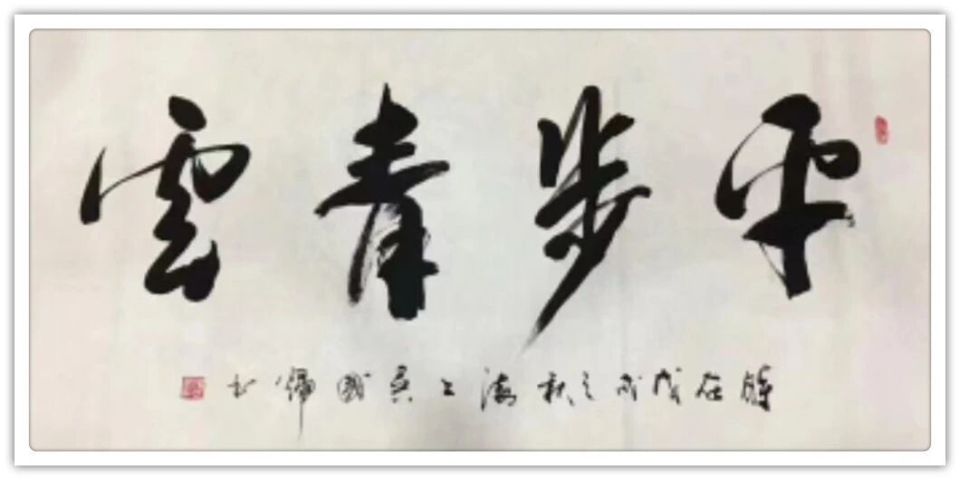 平步青雲
歲在戊戌之秋海上吳國歸書